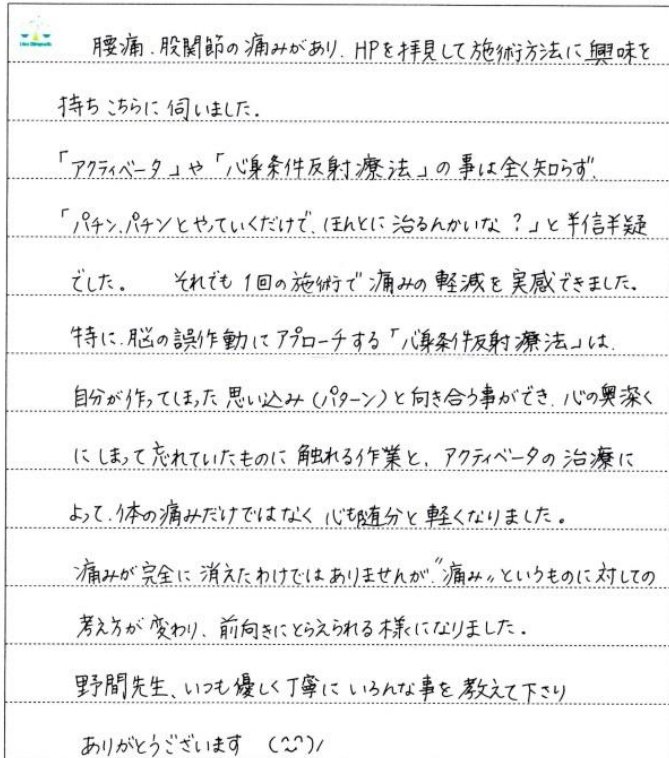 腰痛、股関節の痛みがあり、HPを拝見して施術方法に興味を
持ちこちらに伺いました。
「アクティベータ」や「心身条件反射療法」の事は全く知らず、
「パチン、パチンとやっていくだけで、ほんとに治るんかいな?」と半信半疑
でした。 それでも1回の施術で痛みの軽減を実感できました。
特に、脳の誤作動にアプローチする「心身条件反射療法」は、
自分が作ってしまった思い込み(パターン)と向き合う事ができ、心の奥深く
にしまって忘れていたものに触れる作業と、アクティベータの治療に
よって、体の痛みだけではなく心も随分と軽くなりました。
痛みが完全に消えたわけではありませんが、"痛み"というものに対しての
考え方が変わり、前向きにとらえられる様になりました。
野間先生、いつも優しく丁寧にいろんな事を教えて下さり
ありがとうございます (^^)/